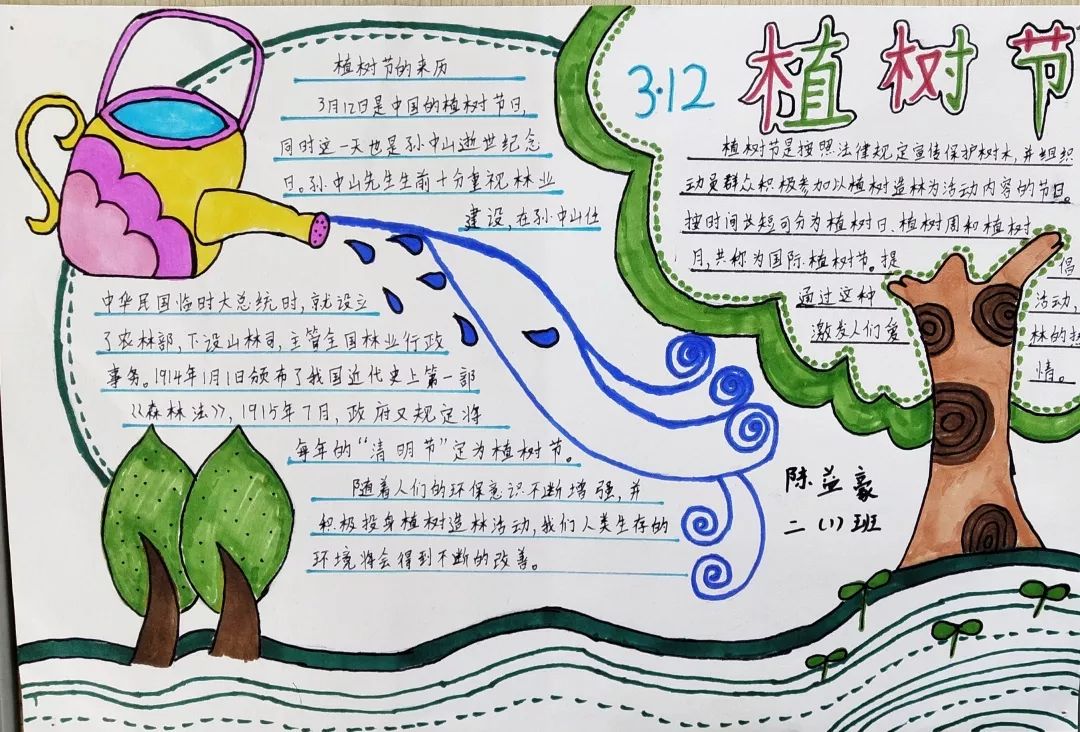 3.12 植树节
植树节的来历
3月12日是中国的植树节日,
同时这一天也是孙中山逝世纪念
日。孙中山先生生前十分重视林业
建设,在孙中山任
中华民国临时大总统时,就设立
了农林部,下设山林司,主管全国林业行政
事务。1914年1月1日颁布了我国近代史上第一部
《森林法》,1915年7月,政府又规定将
每年的“清明节”定为植树节。
随着人们的环保意识不断增强,并
积极投身植树造林活动,我们人类生存的
环境将会得到不断的改善。
植树节是按照法律规定宣传保护树木,并组织
动员群众积极参加以植树造林为活动内容的节日。
按时间长短可分为植树日、植树周和植树
月,共称为国际植树节。提倡
通过这种活动,
激发人们爱林的热
情。
陈益豪
二(1)班